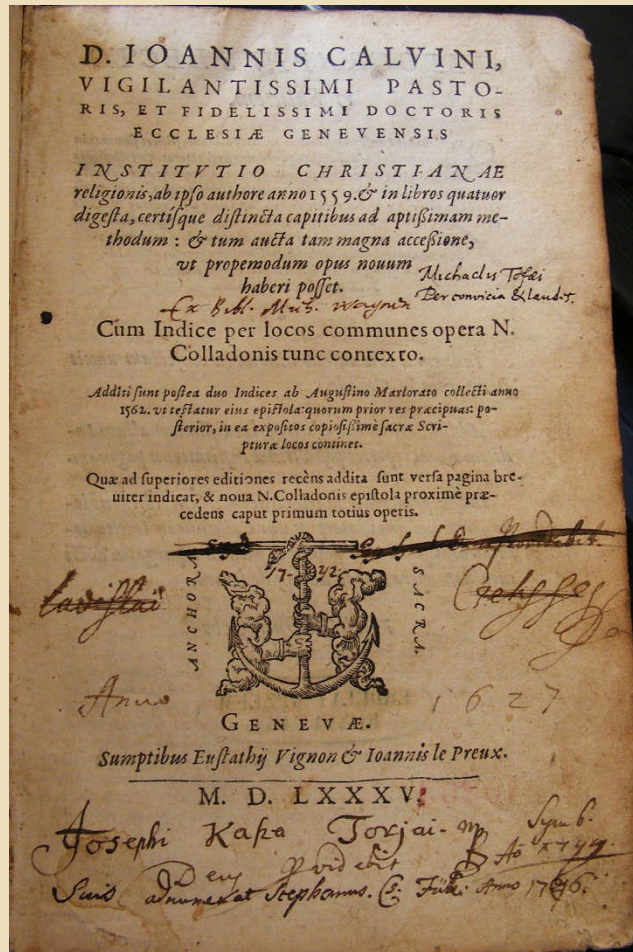 D. IOANNIS CALVINI,
VIGILANTISSIMI PASTO-
RIS, ET FIDELISSIMI DOCTORIS
ECCLESIÆ GENEVENSIS
INSTITVTIO CHRISTIANAE
religionis, ab ipso authore anno 1559. & in libros quatuor
digesta, certisque distincta capitibus ad aptißimam me-
thodum : & tum aucta tam magna acceßione,
vt propemodum opus nouum
haberi posset.
Michaelis Tofæi
Per convicia & laudes.
Ex Bibl.
Cum Indice per locos communes opera N.
Colladonis tunc contexto.
Additi sunt postea duo Indices ab Augustino Marlorato collecti anno
1562. vt testatur eius epistola: quorum prior res præcipuas: po-
sterior, in ea expositos copiosißimè sacræ Scri-
pturæ locos continet.
Quæ ad superiores editiones recèns addita sunt versa pagina bre-
uiter indicat, & noua N. Colladonis epistola proximè præ-
cedens caput primum totius operis.
ANCHORA
SACRA.
Anno 1627
GENEVÆ.
Sumptibus Eustathij Vignon & Ioannis le Preux.
M. D. LXXXV.
Josephi Kasza Torjai
Symb.
Deus providebit
Suis adnumerat Stephanus
Anno